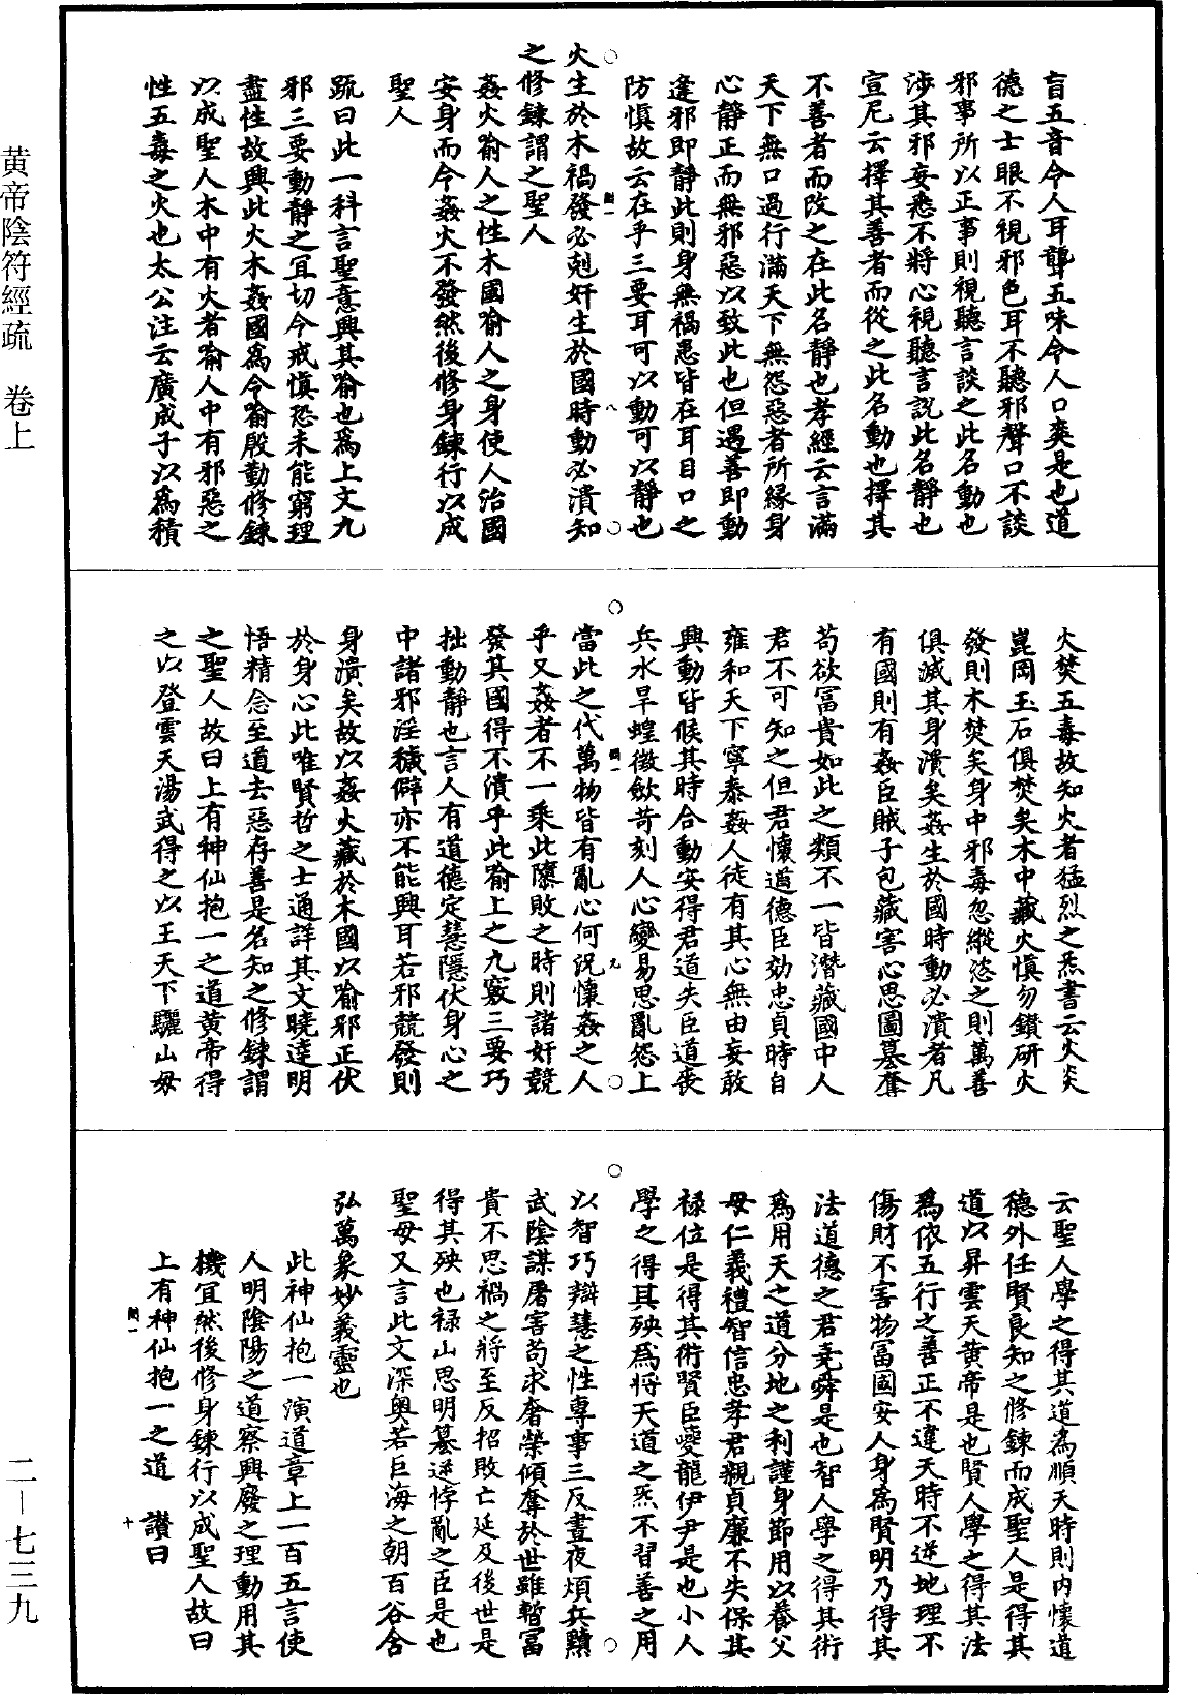 黃帝陰符經疏　卷上
盲五音令人耳聾五味令人口爽是也道
德之士眼不視邪色耳不聽邪聲口不談
邪事所以正事則視聽言談之此名動也
涉其邪妄悉不將心視聽言說此名靜也
宣尼云擇其善者而從之此名動也擇其
不善者而改之在此名靜也孝經云言滿
天下無口過行滿天下無怨惡者所緣身
心靜正而無邪惡以致此也但遇善即動
逢邪即靜此則身無禍患皆在耳目口之
防慎故云在乎三要耳可以動可以靜也
火生於木禍發必剋奸生於國時動必潰知
之修鍊謂之聖人
姦火喻人之性木國喻人之身使人治國
安身而令姦火不發然後修身鍊行以成
聖人
疏曰此一科言聖意興其喻也為上文九
邪三要動靜之宜切令戒慎恐未能窮理
盡性故興此火木姦國為令喻殷勤修鍊
以成聖人木中有火者喻人中有邪惡之
性五毒之火也太公注云廣成子以為積
火焚五毒故知火者猛烈之炁書云火炎
崑岡玉石俱焚矣木中藏火慎勿鑽研火
發則木焚矣身中邪毒忽縱恣之則萬善
俱滅其身潰矣姦生於國時動必潰者凡
有國則有姦臣賊子包藏害心思圖篡奪
苟欲冨貴如此之類不一皆潛藏國中人
君不可知之但君懷道德臣効忠貞時自
雍和天下寧泰姦人徒有其心無由妄敢
興動皆候其時合動安得君道失臣道喪
兵水旱蝗徵歛苛刻人心變易思亂怨上
當此之代萬物皆有亂心何況懷姦之人
乎又姦者不一乘此隳敗之時則諸奸競
發其國得不潰乎此喻上之九竅三要巧
拙動靜也言人有道德定慧隱伏身心之
中諸邪淫穢僻亦不能興耳若邪競發則
身潰矣故以姦火藏於木國以喻邪正伏
於身心此唯賢哲之士通詳其文曉達明
悟精念至道去惡存善是名知之修鍊謂
之聖人故曰上有神仙抱一之道黃帝得
之以登雲天湯武得之以王天下驪山母
云聖人學之得其道為順天時則內懷道
德外任賢良知之修鍊而成聖人是得其
道以昇雲天黃帝是也賢人學之得其法
為依五行之善正不違天時不逆地理不
傷財不害物冨國安人身為賢明乃得其
法道德之君堯舜是也智人學之得其術
為用天之道分地之利謹身節用以養父
母仁義禮智信忠孝君親貞廉不失保其
祿位是得其術賢臣夔龍伊尹是也小人
學之得其殃為將天道之炁不習善之用
以智巧辯慧之性專事三反晝夜煩兵黷
武陰謀屠害苟求奢榮傾奪於世雖暫冨
貴不思禍之將至反招敗亡延及後世是
得其殃也祿山思明篡逆悖亂之臣是也
聖母又言此文深奧若巨海之朝百谷含
弘萬象妙義靈也
此神仙抱一演道章上一百五言使
人明陰陽之道察興廢之理動用其
機宜然後修身鍊行以成聖人故曰
上有神仙抱一之道　讚曰
閏一　八
閏一　九
閏一　十
二－七三九